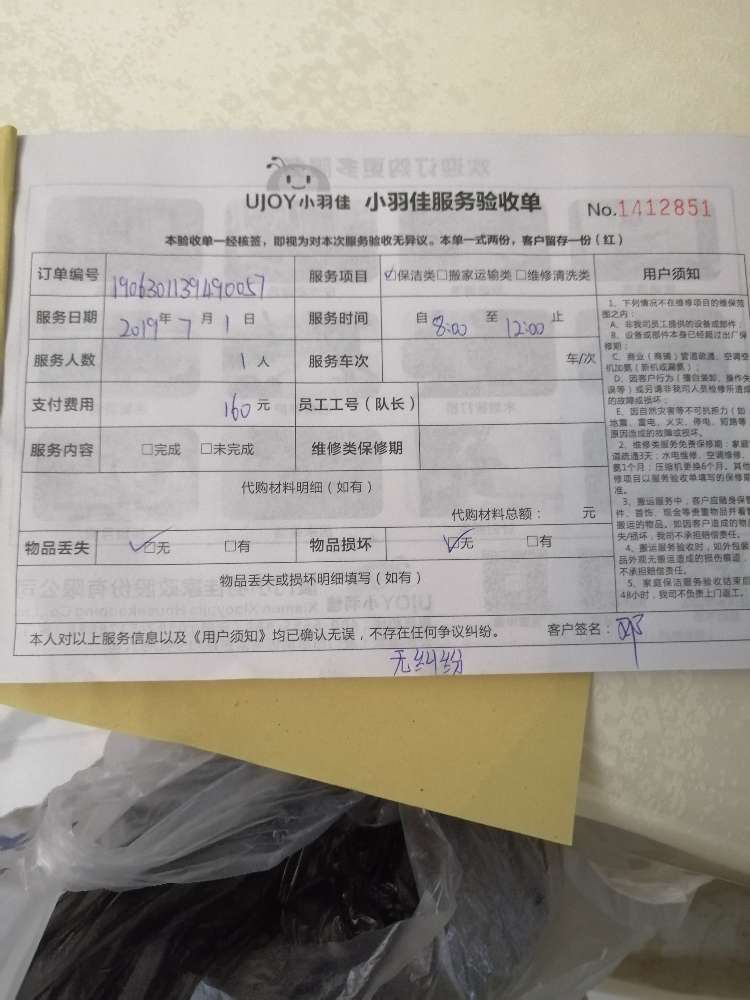 UJOY小羽佳 小羽佳服务验收单 No.1412851
本验收单一经核签，即视为对本次服务验收无异议。本单一式两份，客户留存一份（红）
订单编号 1906301139490057 服务项目 ☑保洁类□搬家运输类 □维修清洗类 用户须知
服务日期 2019年 7月 1日 服务时间 自 8:00 至 12:00 止
服务人数 1人 服务车次 车/次
支付费用 160元 员工工号（队长）
服务内容 □完成 □未完成 维修类保修期
代购材料明细（如有）
代购材料总额： 元
物品丢失 ☑无 □有 物品损坏 ☑无 □有
物品丢失或损坏明细填写（如有）
本人对以上服务信息以及《用户须知》均已确认无误，不存在任何争议纠纷。 客户签名：
无纠纷
1、下列情况不在维修项目的维保范
围之内：
A、非我司员工提供的设备或部件；
B、设备或部件本身已经超过出厂保
修期；
C、商业（商铺）管道疏通、空调空
机加氨（新机或漏氨）；
D、因客户行为（擅自装卸、操作失
误等）或另请非我司人员检修所造成
的故障或损坏；
E、因自然灾害等不可抗拒力（如
地震、雷电、火灾、停电、短路等
原因造成的故障或损坏。
2、维修类服务免费保修期：家庭
道疏通3天；水电维修、空调维修、
氨1个月；压缩机更换6个月。其他
修项目以服务验收单填写的保修期
准。
3、搬运服务中，客户应随身保管
件、首饰、现金等贵重物品并看管
搬运的物品。如因客户造成的物
失/损坏，我司不承担赔偿责任。
4、搬运服务验收时，如外包装
品外观无搬运造成的损伤痕迹，
不承担赔偿责任。
5、家庭保洁服务验收结束后
48小时，我司不负责上门返工。